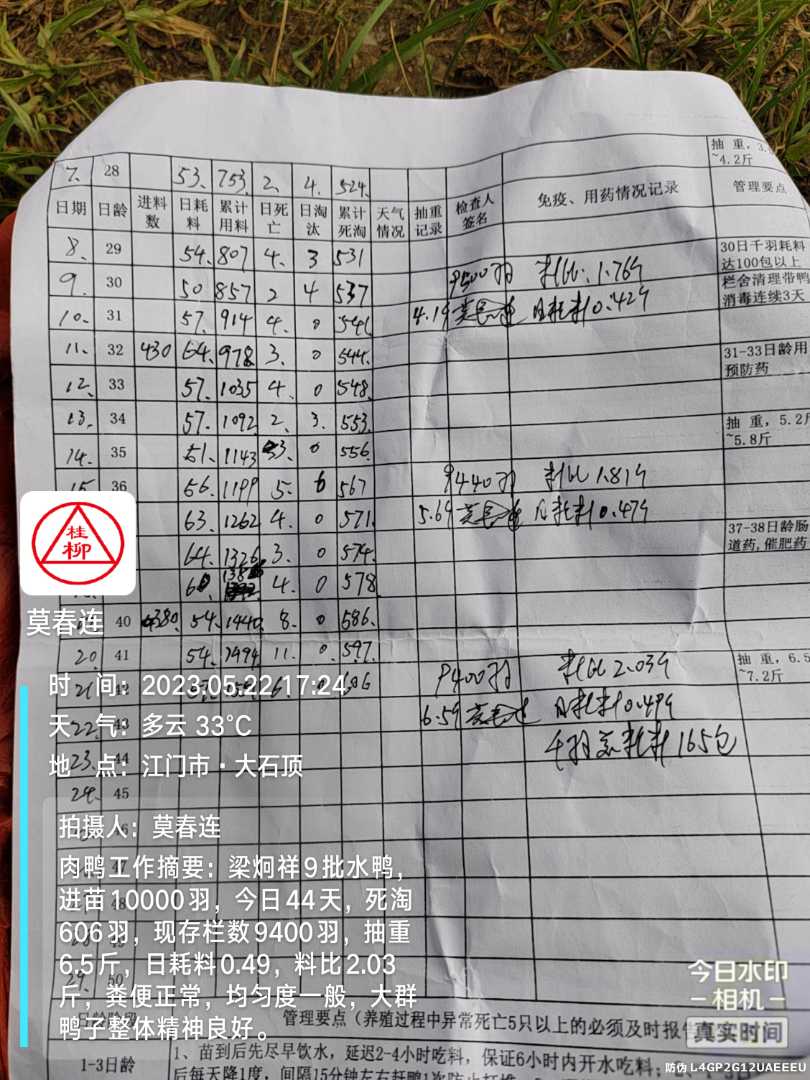 抽 重，3.
~4.2斤
7. 28 53. 753. 2. 4. 524.
日期 日龄 进料数 日耗料 累计用料 日死亡 日淘汰 累计死淘 天气情况 抽重记录 检查人签名 免疫、用药情况记录 管理要点
8. 29 54. 807 4. 3 531 30日千羽耗料达100包以上
9. 30 50 857 2 4 537 9500羽 料比:1.76斤 栏舍清理带鸭消毒连续3天
10. 31 57. 914 4. 0 541 4.1斤 日耗料0.42斤
11. 32 430 64. 978 3. 0 544. 31-33日龄用预防药
12. 33 57. 1035 4. 0 548.
13. 34 57. 1092 2. 3. 553. 抽 重，5.2斤~5.8斤
14. 35 51. 1143 3. 0 556.
15. 36 56. 1199 5. 6 567 9440羽 料比1.81斤
63. 1262 4. 0 571. 5.6斤 日耗料0.47斤 37-38日龄肠道药,催肥药
64. 1326 3. 0 574.
4. 0 578
40 380. 54. 1440. 8. 0 586.
20. 41 54. 1494 11. 0. 597. 9400羽 料比2.03斤 抽 重，6.5~7.2斤
21. 6.5斤 日耗料0.49斤
22. 43 千羽总耗料165包
23. 44
24. 45
桂
柳
莫春连
时 间：2023.05.22 17:24
天 气：多云 33℃
地 点：江门市·大石顶
拍摄人：莫春连
肉鸭工作摘要：梁炯祥9批水鸭，
进苗10000羽，今日44天，死淘
606羽，现存栏数9400羽，抽重
6.5斤，日耗料0.49，料比2.03
斤，粪便正常，均匀度一般，大群
鸭子整体精神良好。
29. 50
今日水印
相机
真实时间
管理要点（养殖过程中异常死亡5只以上的必须及时报
1-3日龄 1、苗到后先尽早饮水，延迟2-4小时吃料，保证6小时内开水吃料；
后每天降1度，间隔15分钟左右赶鸭1次防止打堆
防伪 L4GP2G12UAEEEU